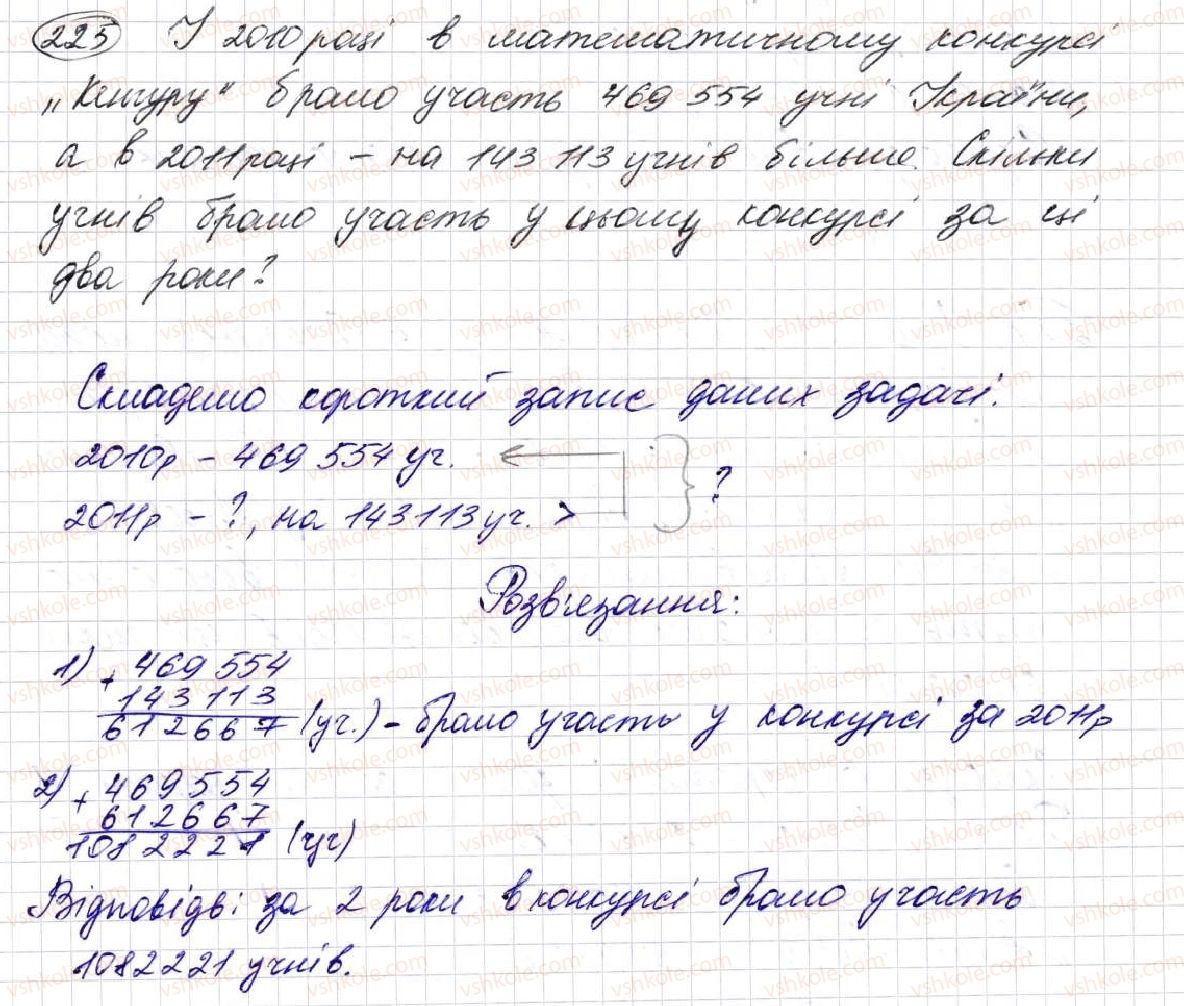 225 У 2010 році в математичному конкурсі
„Кенгуру" брало участь 469 554 учні України,
а в 2011 році – на 143 113 учнів більше. Скільки
учнів брало участь у цьому конкурсі за ці
два роки?
Складемо короткий запис даних задачі:
2010р – 469 554 уч.
2011р – ?, на 143113 уч. >
?
Розв'язання:
1) + 469 554
143 113
612667 (уч.) – брало участь у конкурсі за 2011р
2) + 469554
612667
1082221 (уч)
Відповідь: за 2 роки в конкурсі брало участь
1082221 учнів.
vshkole.com